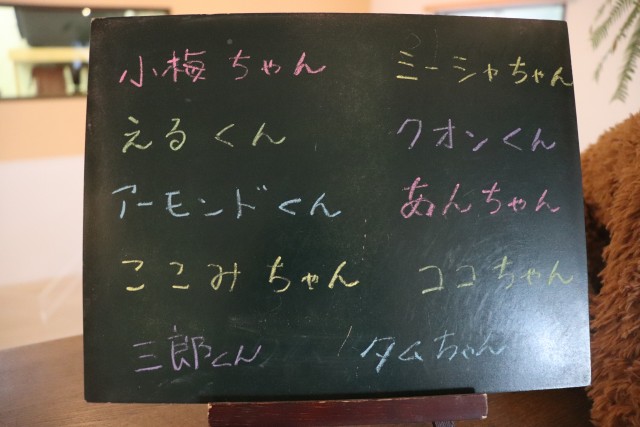 小梅ちゃん ミーシャちゃん
えるくん クオンくん
アーモンドくん あんちゃん
ここみちゃん ココちゃん
三郎くん タムちゃん